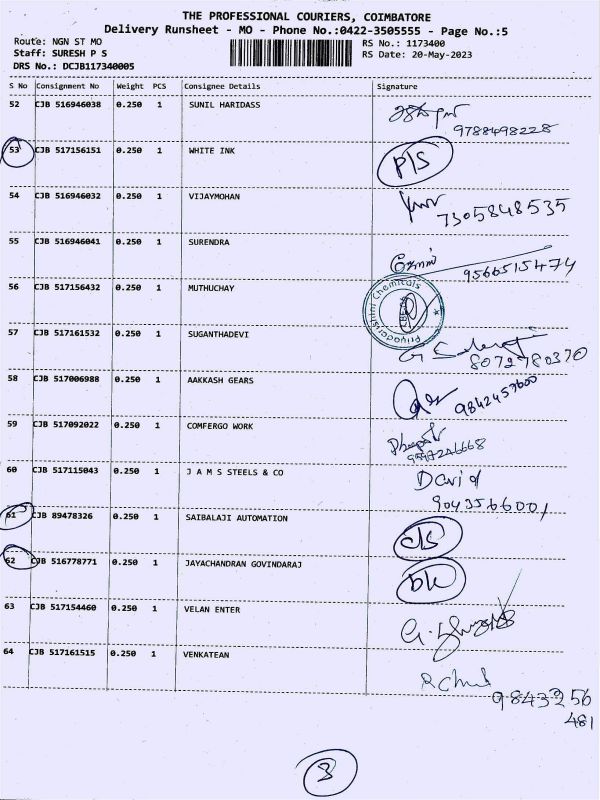 THE PROFESSIONAL COURIERS, COIMBATORE
Delivery Runsheet - MO - Phone No.:0422-3505555 - Page No.:5
Route: NGN ST MO RS No.: 1173400
Staff: SURESH P S RS Date: 20-May-2023
DRS No.: DCJB117340005
S No Consignment No Weight PCS Consignee Details Signature
52 CJB 516946038 0.250 1 SUNIL HARIDASS
9788498228
53 CJB 517156151 0.250 1 WHITE INK P/S
54 CJB 516946032 0.250 1 VIJAYMOHAN
7305848535
55 CJB 516946041 0.250 1 SURENDRA
9566515474
56 CJB 517156432 0.250 1 MUTHUCHAY
Priyadarshini Chemicals
57 CJB 517161532 0.250 1 SUGANTHADEVI
8072780370
58 CJB 517006988 0.250 1 AAKKASH GEARS
9842457600
59 CJB 517092022 0.250 1 COMFERGO WORK
60 CJB 517115043 0.250 1 J A M S STEELS & CO David
9043566001
61 CJB 89478326 0.250 1 SAIBALAJI AUTOMATION C/S
62 CJB 516778771 0.250 1 JAYACHANDRAN GOVINDARAJ DK
63 CJB 517154460 0.250 1 VELAN ENTER
64 CJB 517161515 0.250 1 VENKATEAN
9843256
481
8